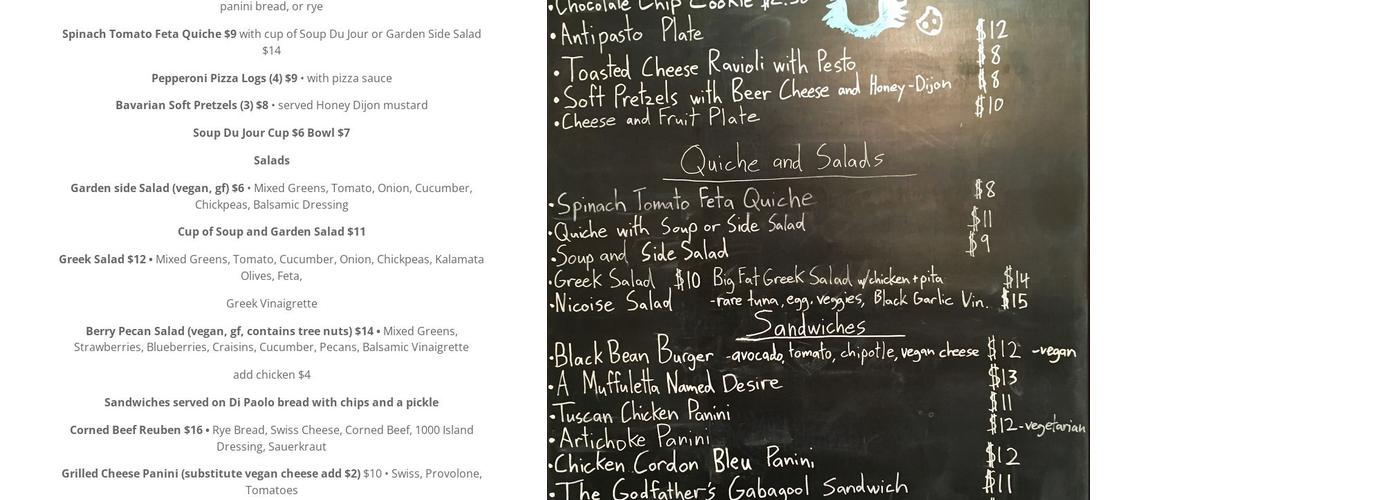 panini bread, or rye
Spinach Tomato Feta Quiche $9 with cup of Soup Du Jour or Garden Side Salad
$14
Pepperoni Pizza Logs (4) $9 • with pizza sauce
Bavarian Soft Pretzels (3) $8 • served Honey Dijon mustard
Soup Du Jour Cup $6 Bowl $7
Salads
Garden side Salad (vegan, gf) $6 • Mixed Greens, Tomato, Onion, Cucumber,
Chickpeas, Balsamic Dressing
Cup of Soup and Garden Salad $11
Greek Salad $12 • Mixed Greens, Tomato, Cucumber, Onion, Chickpeas, Kalamata
Olives, Feta,
Greek Vinaigrette
Berry Pecan Salad (vegan, gf, contains tree nuts) $14 • Mixed Greens,
Strawberries, Blueberries, Craisins, Cucumber, Pecans, Balsamic Vinaigrette
add chicken $4
Sandwiches served on Di Paolo bread with chips and a pickle
Corned Beef Reuben $16 • Rye Bread, Swiss Cheese, Corned Beef, 1000 Island
Dressing, Sauerkraut
Grilled Cheese Panini (substitute vegan cheese add $2) $10 • Swiss, Provolone,
Tomatoes
•Chocolate Chip Cookie $2.50
•Antipasto Plate $12
•Toasted Cheese Ravioli with Pesto $8
•Soft Pretzels with Beer Cheese and Honey-Dijon $8
•Cheese and Fruit Plate $10
Quiche and Salads
•Spinach Tomato Feta Quiche $8
•Quiche with Soup or Side Salad $11
•Soup and Side Salad $9
•Greek Salad $10 Big Fat Greek Salad w/chicken+pita $14
•Nicoise Salad -rare tuna, egg, veggies, Black Garlic Vin. $15
Sandwiches
•Black Bean Burger -avocado, tomato, chipotle, vegan cheese $12 -vegan
•A Muffuletta Named Desire $13
•Tuscan Chicken Panini $11
•Artichoke Panini $12-vegetarian
•Chicken Cordon Bleu Panini $12
•The Godfather's Gabagool Sandwich $11